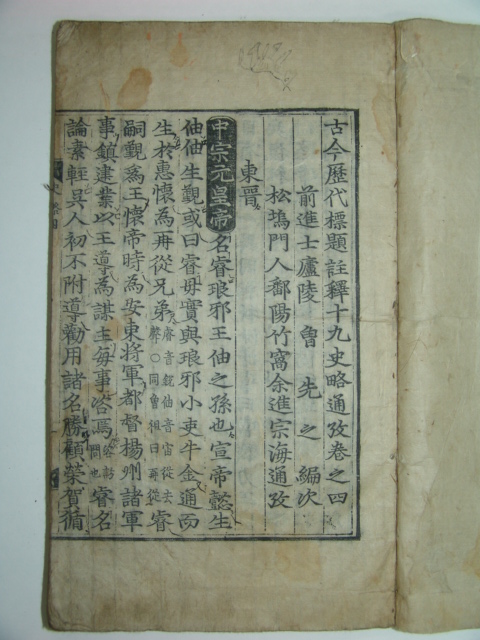 古今歷代標題註釋十九史略通攷卷之四
前進士廬陵曾先之編次
松塢門人鄱陽竹窩余進宗海通攷
東晉
中宗元皇帝名睿琅邪王伷之孫也宣帝懿生
伷伷生觀或曰睿母實與琅邪小吏牛金通而
生於惠懷為再從兄弟睿音銳伷音宙從去聲○同曾祖曰再從睿
嗣觀為王懷帝時為安東將軍都督揚州諸軍
事鎮建業以王導為謀主每事咨焉咨諮問也睿名
論素輕吳人初不附導勸用諸名勝顧榮賀循